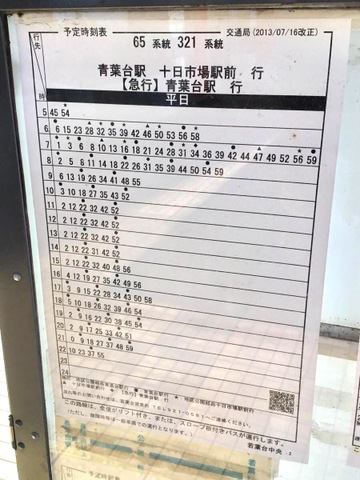 予定時刻表 交通局(2013/07/16改正)
行先
65 系統 321 系統
青葉台駅 十日市場駅前 行
【急行】青葉台駅 行
時 平日
5 45 54
6 6 15 23 28 32 35 39 42 46 50 53 56 58
7 1 3 6 8 13 16 18 21 24 28 31 34 36 39 42 44 47 49 52 56 59
8 2 5 8 11 15 18 21 26 31 35 39 44 50 54 59
9 6 13 19 26 34 41 48 55
10 3 10 18 27 35 43 52
11 2 12 22 32 42 52
12 2 12 22 32 42 52
13 2 12 22 32 42 52
14 2 12 22 32 42 52
15 2 12 22 32 40 48 56
16 4 12 19 27 35 42 49 56
17 3 9 15 21 28 34 43 50 58
18 5 10 18 26 34 46 54
19 2 9 16 22 30 38 45 54
20 2 9 15 22 29 36 44 51
21 0 9 18 27 37 48 59
22 10 23 37 55
23
24
この路線は、全便がリフト付き、または、スロープ板付きバスが運行します。
若葉台中央